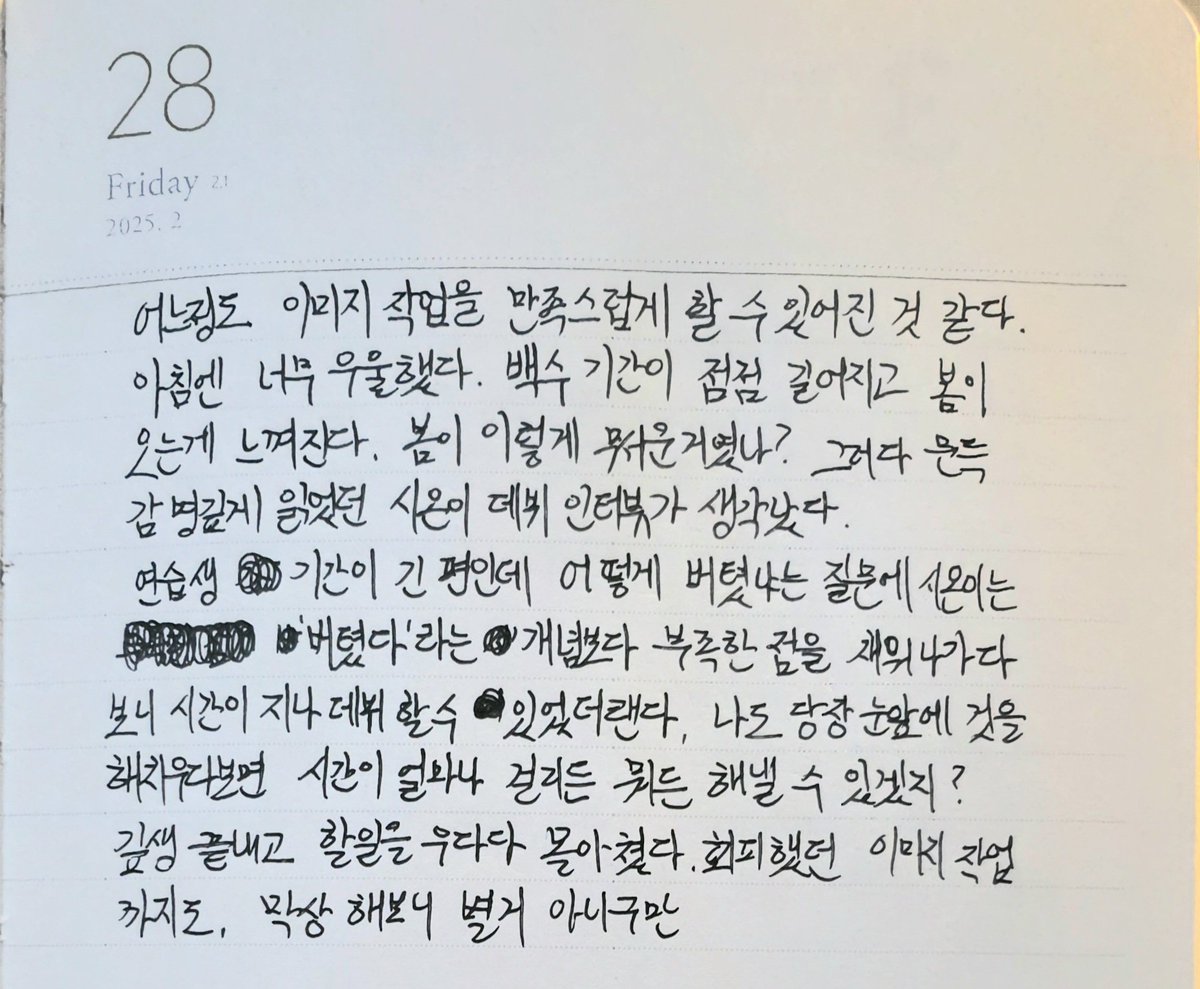 28
Friday 2.1
2025. 2
어느정도 이미지 작업을 만족스럽게 할 수 있어진 것 같다.
아침엔 너무 우울했다. 백수 기간이 점점 길어지고 봄이
오는게 느껴진다. 봄이 이렇게 무서운거였나? 그러다 문득
감명깊게 읽었던 시온이 데뷔 인터뷰가 생각났다.
연습생 기간이 긴 편인데 어떻게 버텼냐는 질문에 시온이는
'버텼다'라는 개념보다 부족한 점을 채워나가다
보니 시간이 지나 데뷔 할 수 있었더랜다. 나도 당장 눈앞에 것을
해치우다보면 시간이 얼마나 걸리든 뭐든 해낼 수 있겠지?
깊생 끝내고 할일을 우다다 몰아쳤다. 회피했던 이미지 작업
까지도. 막상 해보니 별거 아니구만